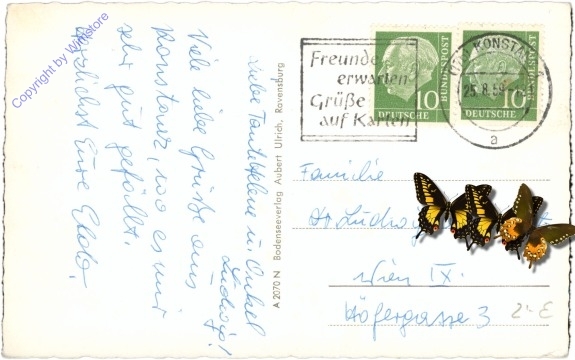 Copyright by Winstore
Liebe Tante Helene u. Onkel
Ludwig!
Viele liebe Grüße aus
Konstanz, wo es mir
sehr gut gefällt.
Herzlichst Eure
A 2070 N Bodenseeverlag Aubert Ulrich, Ravensburg
Freunde
erwarten
Grüße
auf Karten
10
DEUTSCHE
BUNDESPOST
10
DEUTSCHE
BUNDESPOST
KONSTANZ
25.8.59
a
Familie
Ludwig
Wien IX.
Höfergasse 3
2.-E